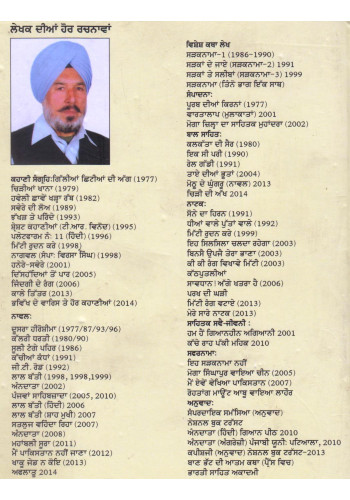 ਲੇਖਕ ਦੀਆਂ ਹੋਰ ਰਚਨਾਵਾਂ
ਕਹਾਣੀ ਸੰਗ੍ਰਹਿ:ਗਿੱਲੀਆਂ ਛਿਟੀਆਂ ਦੀ ਅੱਗ (1977)
ਚਿੜੀਆਂ ਖਾਨਾ (1979)
ਹਵੇਲੀ ਛਾਵੇਂ ਖੜ੍ਹਾ ਰੱਬ (1982)
ਸਵੇਰ ਦੀ ਲੋਅ (1989)
ਭੱਖੜ ਤੇ ਪਰਿੰਦੇ (1993)
ਸ਼੍ਰੇਸ਼ਟ ਕਹਾਣੀਆਂ (ਟੀ.ਆਰ. ਵਿਨੋਦ) (1995)
ਪਲੇਟਫਾਰਮ ਨੰ: 11 (ਹਿੰਦੀ) (1996)
ਮਿੱਟੀ ਰੁਦਨ ਕਰੇ (1998)
ਨਾਗਵਲ (ਸੰਪਾ: ਵਿਰਸਾ ਸਿੰਘ) (1998)
ਹਨੇਰੇ-ਸਵੇਰੇ (2001)
ਦਿੱਸਹੱਦਿਆਂ ਤੋਂ ਪਾਰ (2005)
ਜਿੰਦਗੀ ਦੇ ਰੰਗ (2006)
ਕਾਲੇ ਤਿੱਤਰ (2013)
ਭਵਿੱਖ ਦੇ ਵਾਰਿਸ ਤੇ ਹੋਰ ਕਹਾਣੀਆਂ (2014)
ਨਾਵਲ:
ਦੂਸਰਾ ਹੀਰੋਸ਼ੀਮਾ (1977/87/93/96)
ਕੱਲਰੀ ਧਰਤੀ (1980/90)
ਸੂਲੀ ਟੰਗੇ ਪਹਿਰ (1986)
ਕੱਚੀਆਂ ਕੰਧਾਂ (1991)
ਜੀ.ਟੀ. ਰੋਡ (1992)
ਲਾਲ ਬੱਤੀ (1998, 1998,1999)
ਅੰਨਦਾਤਾ (2002)
ਪੰਜਵਾਂ ਸਾਹਿਬਜ਼ਾਦਾ (2005), 2010
ਲਾਲ ਬੱਤੀ (ਹਿੰਦੀ) 2006
ਲਾਲ ਬੱਤੀ (ਸ਼ਾਹ ਮੁਖੀ) 2007
ਸਤਲੁਜ ਵਹਿੰਦਾ ਰਿਹਾ (2007)
ਅੰਨਦਾਤਾ (2008)
ਮਹਾਂਬਲੀ ਸੂਰਾ (2011)
ਮੈਂ ਪਾਕਿਸਤਾਨ ਨਹੀਂ ਜਾਣਾ (2012)
ਖਾਕੂ ਜੇਡ ਨ ਕੋਇ (2013)
ਅਫਲਾਤੂ 2014
ਵਿਸ਼ੇਸ਼ ਕਥਾ ਲੇਖ
ਸੜਕਨਾਮਾ-1 (1986-1990)
ਸੜਕਾਂ ਦੇ ਜਾਏ (ਸੜਕਨਾਮਾ-2) 1991
ਸੜਕਾਂ ਤੇ ਸਲੀਬਾਂ (ਸੜਕਨਾਮਾ-3) 1999
ਸੜਕਨਾਮਾ (ਤਿੰਨੇ ਭਾਗ ਇੱਕ ਸਾਥ)
ਸੰਪਾਦਨਾ:
ਪੂਰਬ ਦੀਆਂ ਕਿਰਨਾਂ (1977)
ਵਾਰਤਾਲਾਪ (ਮੁਲਾਕਾਤਾਂ) 2001
ਮੋਗਾ ਜ਼ਿਲ੍ਹਾ ਦਾ ਸਾਹਿਤਕ ਮੁਹਾਂਦਰਾ (2002)
ਬਾਲ ਸਾਹਿਤ:
ਕਲਕੱਤਾ ਦੀ ਸੈਰ (1980)
ਇਕ ਸੀ ਪਰੀ (1990)
ਰੇਲ ਗੱਡੀ (1991)
ਤਾਏ ਦੀਆਂ ਭੂਤਾਂ (2004)
ਮੋਠੂ ਦੇ ਘੁੰਗਰੂ (ਨਾਵਲ) 2013
ਚਿੜੀ ਦੀ ਅੱਖ 2014
ਨਾਟਕ:
ਸੋਨੇ ਦਾ ਹਿਰਨ (1991)
ਧੀਆਂ ਵਾਲੇ ਪੁੱਤਾਂ ਵਾਲੇ (1992)
ਮਿੱਟੀ ਰੁਦਨ ਕਰੇ (1999)
ਇਹ ਸਿਲਸਿਲਾ ਚਲਦਾ ਰਹੇਗਾ (2003)
ਬਿਨਸੈ ਉਪਜੈ ਤੇਰਾ ਭਾਣਾ (2003)
ਕੀ ਕੀ ਰੰਗ ਵਿਖਾਵੇ ਮਿੱਟੀ (2003)
ਕੱਠਪੁਤਲੀਆਂ
ਸਾਵਧਾਨ। ਅੱਗੇ ਖਤਰਾ ਹੈ (2006)
ਪਰਖ ਦੀ ਘੜੀ
ਮਿੱਟੀ ਰੰਗ ਵਟਾਏ (2013)
ਮੇਰੇ ਸਾਰੇ ਨਾਟਕ (2013)
ਸਾਹਿਤਕ ਸਵੈ-ਜੀਵਨੀ :
ਹਮ ਹੈਂ ਗਿਆਨਹੀਨ ਅਗਿਆਨੀ 2001
ਕੱਚੇ ਰਾਹ ਪੱਕੀ ਮਹਿਕ 2010
ਸਫਰਨਾਮਾ:
ਇਹ ਸੜਕਨਾਮਾ ਨਹੀਂ
ਮੋਗਾ ਸਿੰਘਾਪੁਰ ਵਾਇਆ ਚੀਨ (2005)
ਮੈਂ ਏਵੇਂ ਵੇਖਿਆ ਪਾਕਿਸਤਾਨ (2007)
ਰੋਹਤਾਂਗ ਮਾਊਂਟ ਆਬੂ ਵਾਇਆ ਲਾਹੌਰ
ਅਨੁਵਾਦ:
ਸੰਪਰਦਾਇਕ ਸਮੱਸਿਆ (ਅਨੁਵਾਦ)
ਨੈਸ਼ਨਲ ਬੁਕ ਟਰੱਸਟ
ਅੰਨਦਾਤਾ (ਹਿੰਦੀ) ਗਿਆਨ ਪੀਠ 2010
ਅੰਨਦਾਤਾ (ਅੰਗਰੇਜ਼ੀ) ਪੰਜਾਬੀ ਯੂਨੀ: ਪਟਿਆਲਾ, 2010
ਕਪੀਬਜ਼ੀ (ਅਨੁਵਾਦ) ਨੈਸ਼ਨਲ ਬੁਕ ਟਰੱਸਟ 2013
ਬਾਣ ਭੱਟ ਦੀ ਆਤਮ ਕਥਾ (ਪ੍ਰੈੱਸ ਵਿਚ)
ਭਾਰਤੀ ਸਾਹਿਤ ਅਕਾਦਮੀ